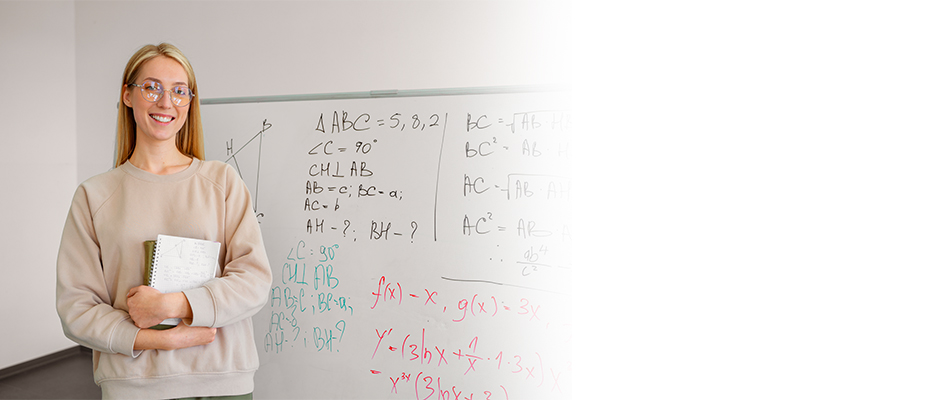 H B
C
△ABC = 5, 8, 2
∠C = 90°
CH⊥AB
AB = c; BC = a;
AC = b
AH - ?; BH - ?
BC = √AB
BC² = AB
AC = √AB · AH
AC² = AB
∴ ab⁴
c²
∠C = 90°
CH⊥AB
AB = c; BC = a;
AC = b
AH - ?; BH - ?
f(x) - x, g(x) = 3x
y' = (3lnx + 1/x · 1 · 3x)
= x³ˣ (3lnx + 3)